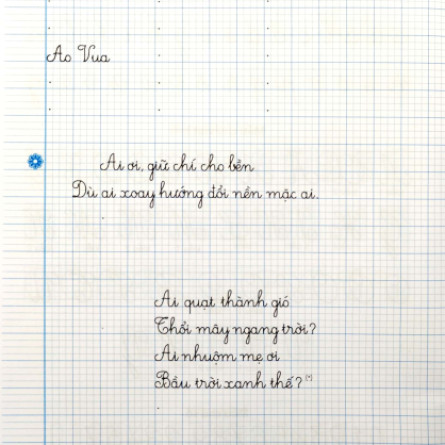 Ao Vua
Ai ơi, giữ chí cho bền
Dù ai xoay hướng đổi nền mặc ai.
Ai quạt thành gió
Thổi mây ngang trời?
Ai nhuộm mẹ ơi
Bầu trời xanh thế? (*)